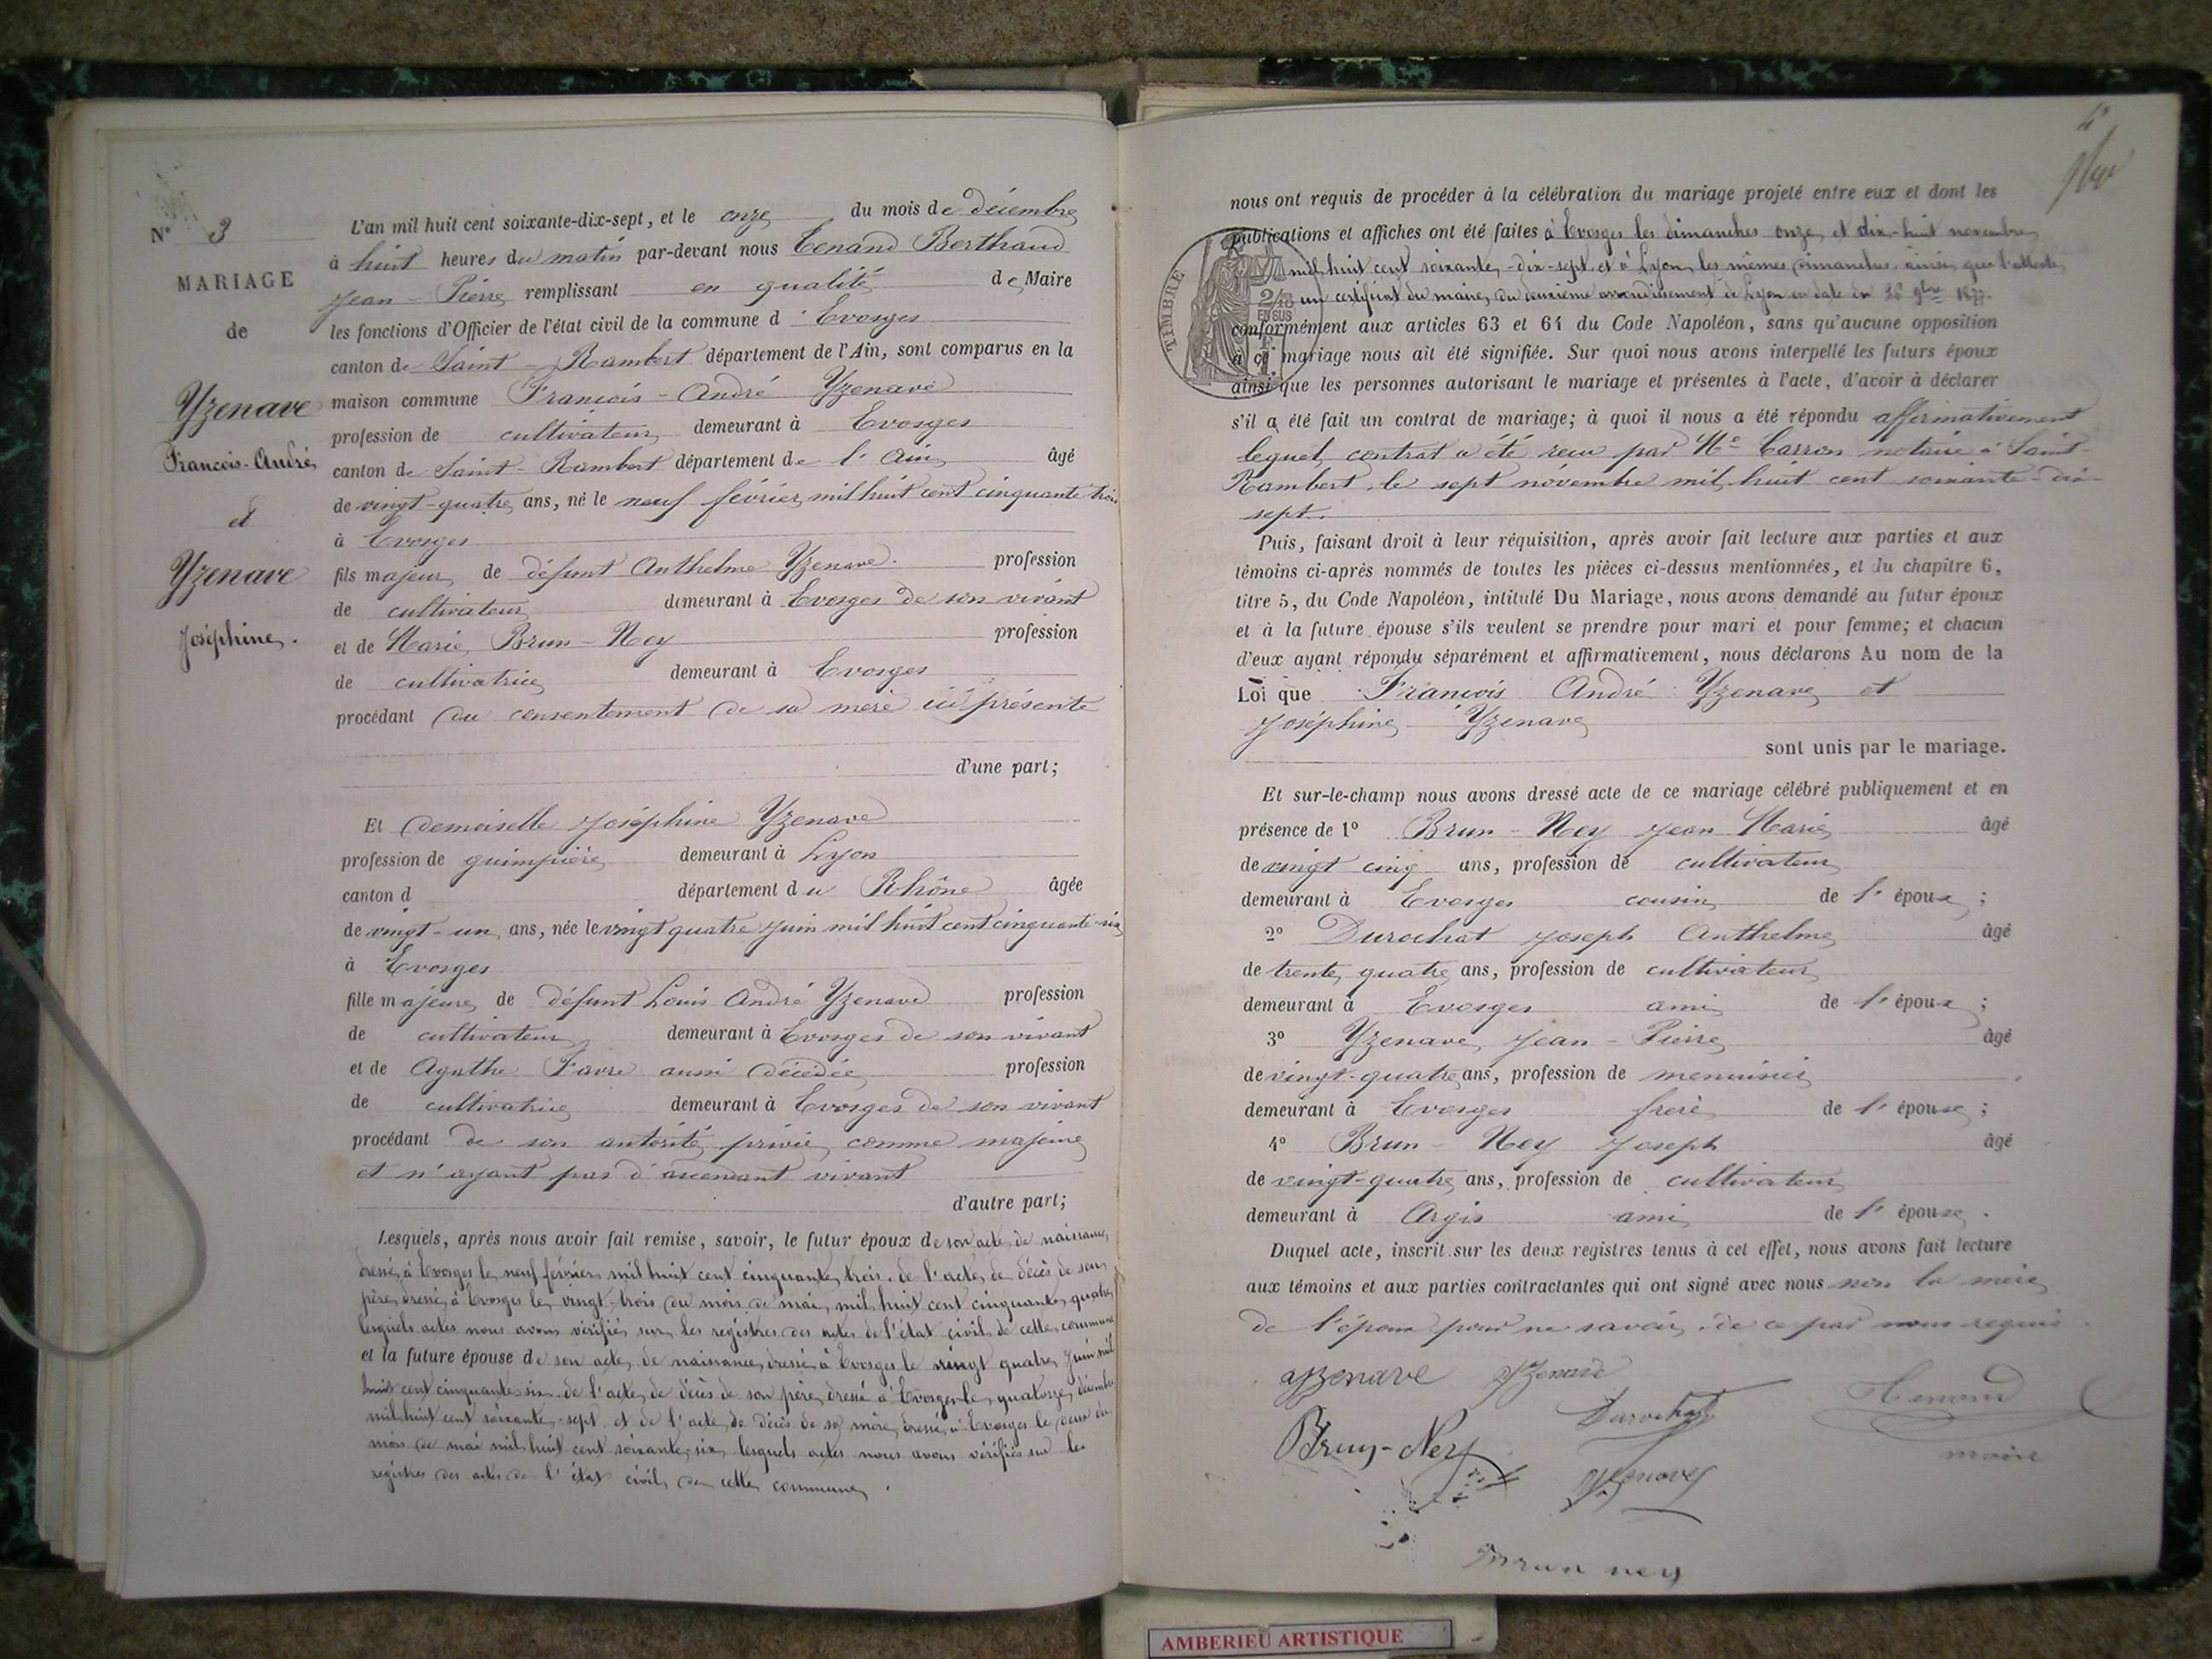 N° 3
MARIAGE
de
Yzenave
François-André
et
Yzenave
Joséphine.
L'an mil huit cent soixante-dix-sept, et le onze du mois de décembre
à huit heures du matin par-devant nous Tenand Berthaud
Jean-Pierre remplissant en qualité de Maire
les fonctions d'Officier de l'état civil de la commune d'Evosges
canton de Saint-Rambert département de l'Ain, sont comparus en la
maison commune François-André Yzenave
profession de cultivateur demeurant à Evosges
canton de Saint-Rambert département de l'Ain âgé
de vingt-quatre ans, né le neuf février mil huit cent cinquante trois
à Evosges
fils majeur de défunt Anthelme Yzenave profession
de cultivateur demeurant à Evosges de son vivant
et de Marie Brun-Ney profession
de cultivatrice demeurant à Evosges
procédant du consentement de sa mère ici présente
d'une part;
Et demoiselle Joséphine Yzenave
profession de guimpière demeurant à Lyon
canton d département du Rhône âgée
de vingt-un ans, née le vingt quatre juin mil huit cent cinquante-six
à Evosges
fille majeure de défunt Louis André Yzenave profession
de cultivateur demeurant à Evosges de son vivant
et de Agathe Favre aussi décédée profession
de cultivatrice demeurant à Evosges de son vivant
procédant de son autorité privée comme majeure
et n'ayant pas d'ascendant vivant
d'autre part;
Lesquels, après nous avoir fait remise, savoir, le futur époux de son acte de naissance
dressé à Evosges le neuf février mil huit cent cinquante trois. de l'acte de décès de son
père dressé à Evosges le vingt-trois du mois de mai mil huit cent cinquante quatre
lesquels actes nous avons vérifiés sur les registres des actes de l'état civil de cette commune
et la future épouse de son acte de naissance dressé à Evosges le vingt quatre juin mil
huit cent cinquante six. de l'acte de décès de son père dressé à Evosges le quatorze décembre
mil huit cent soixante-sept et de l'acte de décès de sa mère dressé à Evosges le deux du
mois de mai mil huit cent soixante six lesquels actes nous avons vérifiés sur les
registres des actes de l'état civil de cette commune.
4e
nous ont requis de procéder à la célébration du mariage projeté entre eux et dont les
publications et affiches ont été faites à Evosges les dimanches onze et dix-huit novembre
mil huit cent soixante-dix-sept et à Lyon les mêmes dimanches ainsi que l'atteste
un certificat du maire du deuxième arrondissement de Lyon en date du 26 9bre 1877.
TIMBRE
2/10
EN SUS
conformément aux articles 63 et 64 du Code Napoléon, sans qu'aucune opposition
à ce mariage nous ait été signifiée. Sur quoi nous avons interpellé les futurs époux
ainsi que les personnes autorisant le mariage et présentes à l'acte, d'avoir à déclarer
s'il a été fait un contrat de mariage; à quoi il nous a été répondu affirmativement
lequel contrat a été reçu par Me Carron notaire à Saint-
Rambert, le sept novembre mil huit cent soixante-dix-
sept.
Puis, faisant droit à leur réquisition, après avoir fait lecture aux parties et aux
témoins ci-après nommés de toutes les pièces ci-dessus mentionnées, et du chapitre 6,
titre 5, du Code Napoléon, intitulé Du Mariage, nous avons demandé au futur époux
et à la future épouse s'ils veulent se prendre pour mari et pour femme; et chacun
d'eux ayant répondu séparément et affirmativement, nous déclarons Au nom de la
Loi que François André Yzenave et
Joséphine Yzenave
sont unis par le mariage.
Et sur-le-champ nous avons dressé acte de ce mariage célébré publiquement et en
présence de 1° Brun-Ney Jean Marie âgé
de vingt cinq ans, profession de cultivateur
demeurant à Evosges cousin de l'époux;
2° Durochat Joseph Anthelme âgé
de trente quatre ans, profession de cultivateur
demeurant à Evosges ami de l'époux;
3° Yzenave Jean-Pierre âgé
de vingt-quatre ans, profession de menuisier
demeurant à Evosges frère de l'épouse;
4° Brun-Ney Joseph âgé
de vingt-quatre ans, profession de cultivateur
demeurant à Argis ami de l'épouse.
Duquel acte, inscrit sur les deux registres tenus à cet effet, nous avons fait lecture
aux témoins et aux parties contractantes qui ont signé avec nous non la mère
de l'époux pour ne savoir. de ce par nous requis.
Yzenave Yzenave
Durochat Tenand
Brun-Ney maire
Yzenave
Brun ney
AMBERIEU ARTISTIQUE